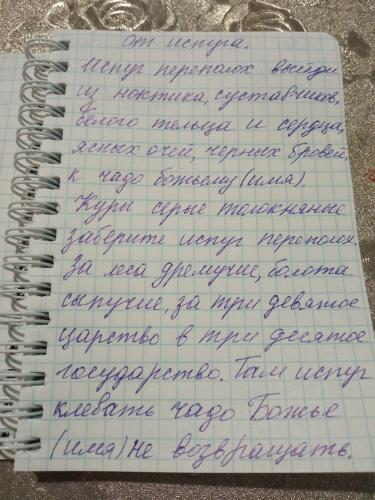 От испуга.
Испуг переполох выступи
из ноктика, суставчиков,
белого тельца и сердца,
ясных очей, черных бровей,
к чадо божьему (имя).
Куры серые толокняные
заберите испуг переполох.
За леса дремучие, болота
сыпучие, за три девятое
царство в три десятое
государство. Там испуг
клевать чадо Божье
(имя) не возвращать.